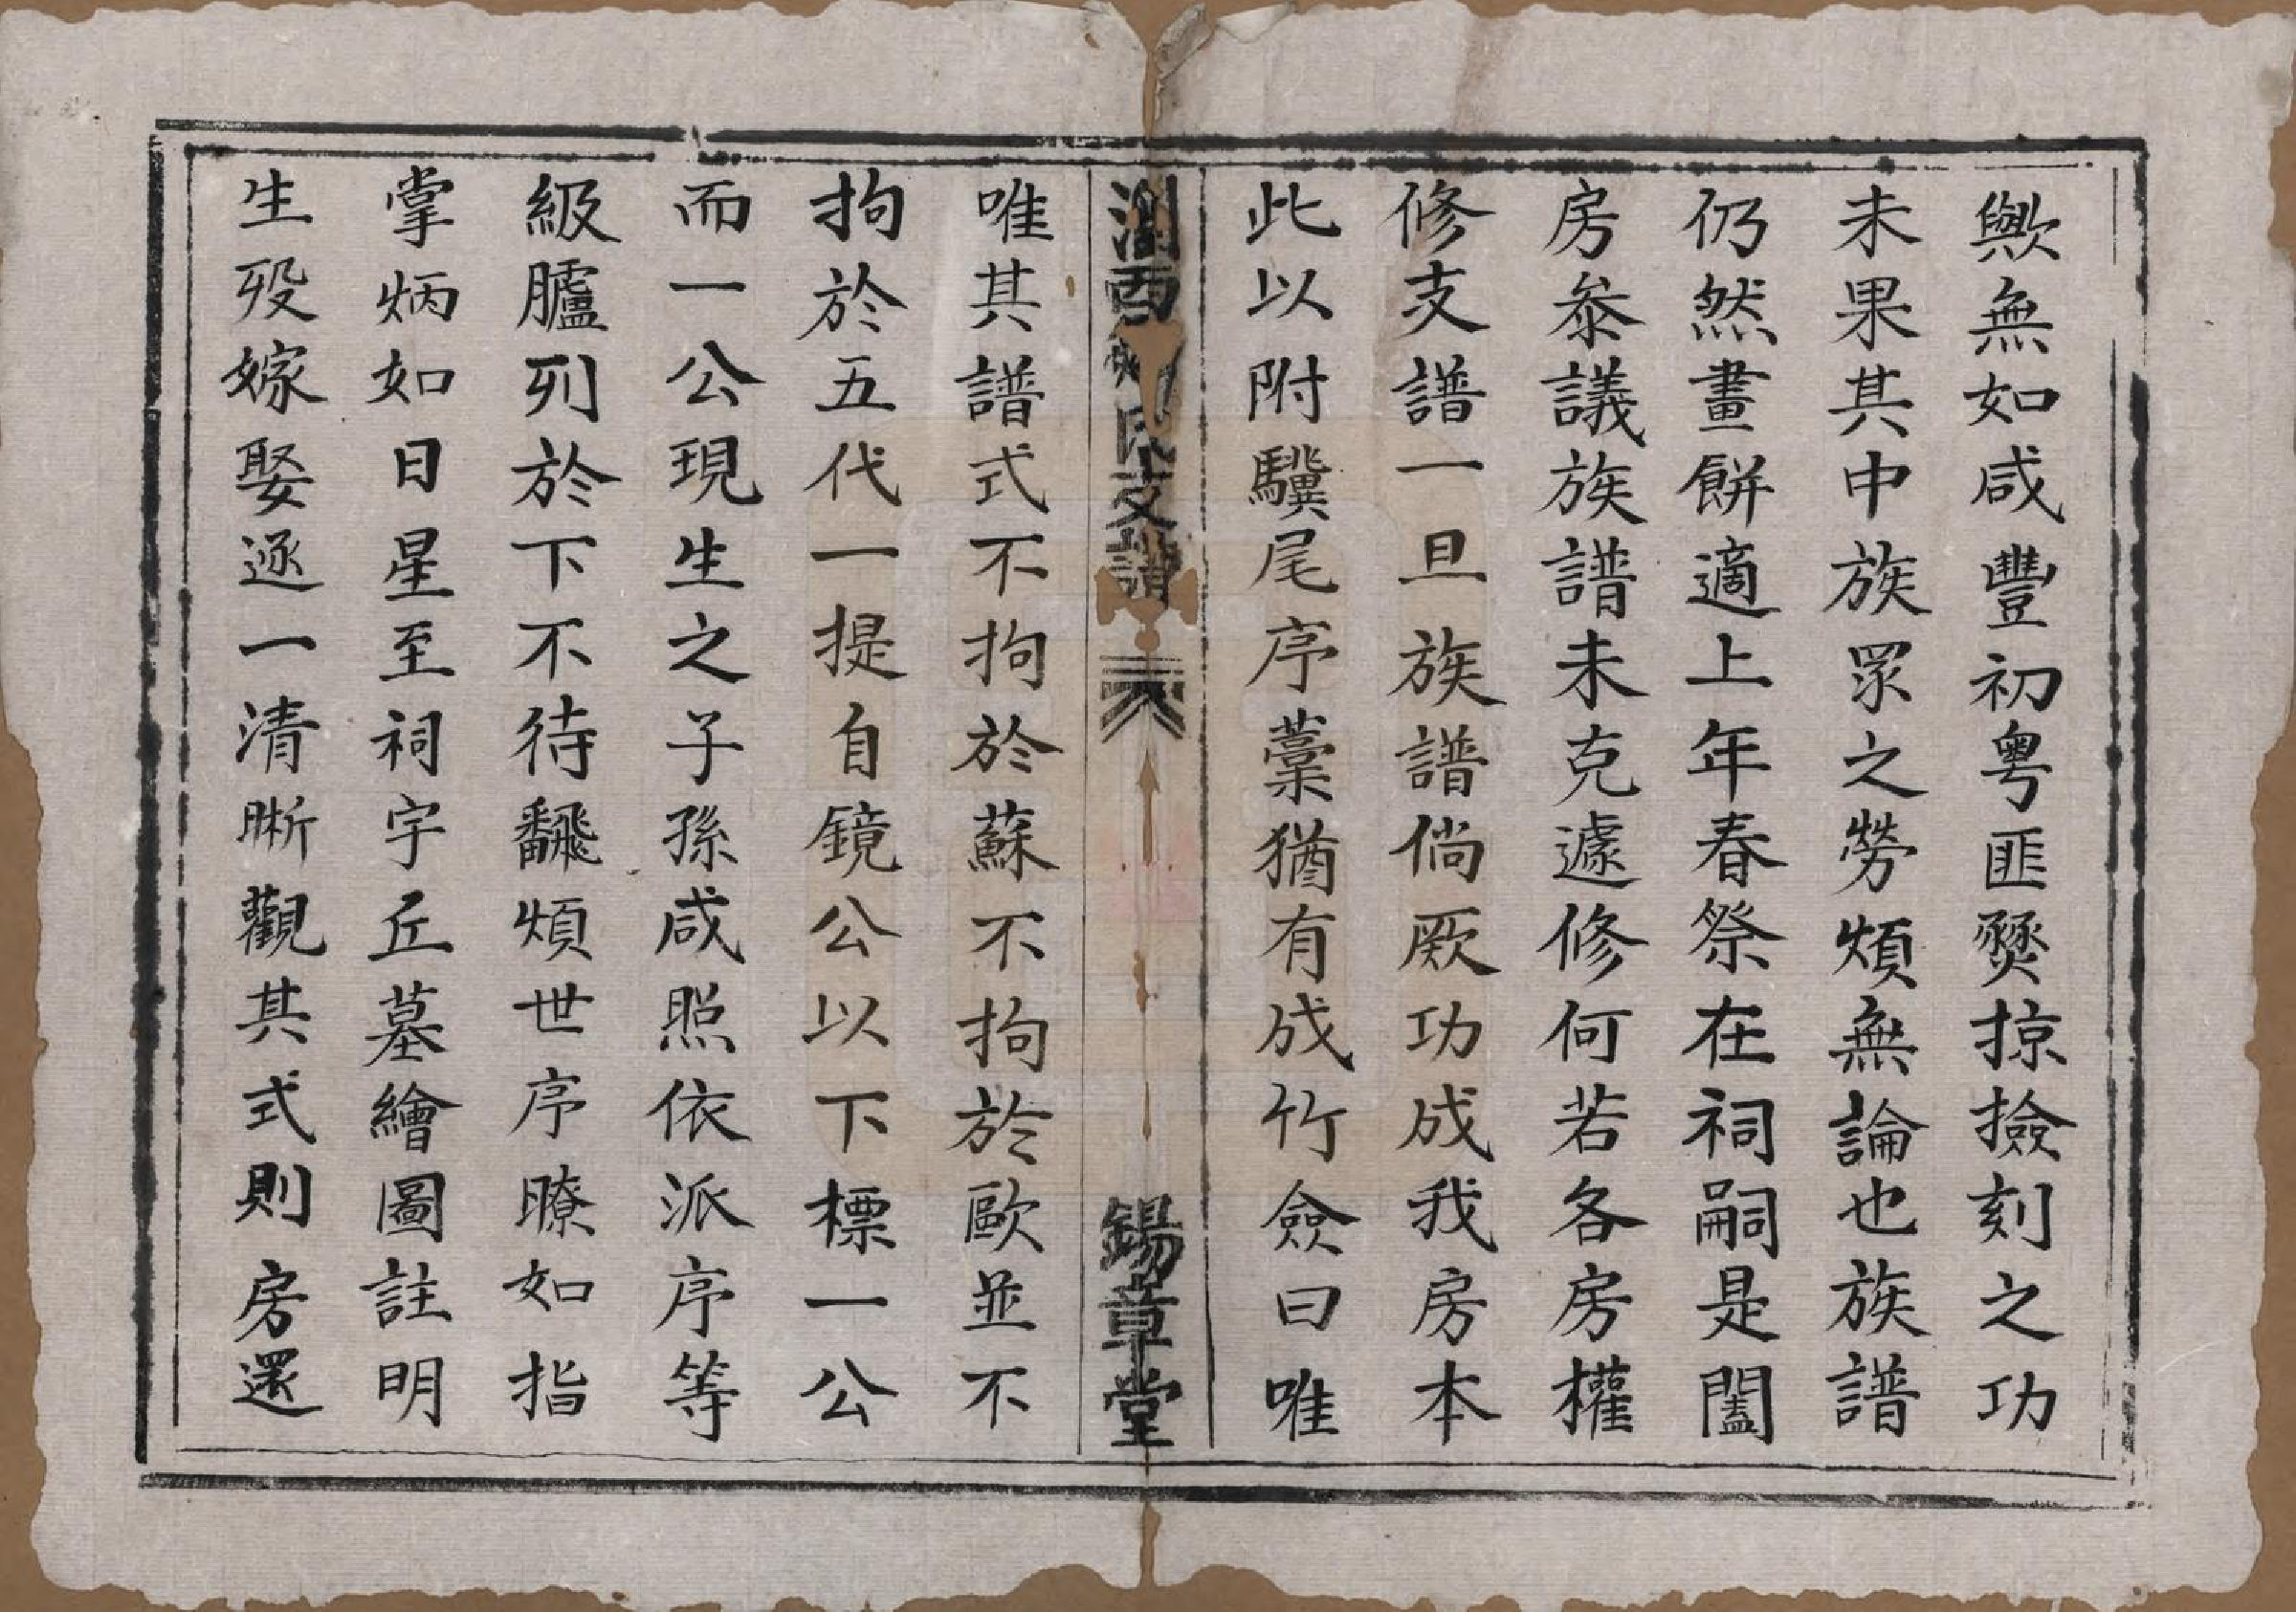 歟無如咸豐初粤匪燹掠撿刻之功
未果其中族眾之勞煩無論也族譜
仍然畫餅適上年春祭在祠嗣是闔
房叅議族譜未克遽修何若各房權
修支譜一旦族譜倘厥功成我房本
此以附驥尾序藁猶有成竹僉曰唯
瀏西 氏支譜
錫章堂
唯其譜式不拘於蘇不拘於歐並不
拘於五代一提自鏡公以下標一公
而一公現生之子孫咸照依派序等
級臚列於下不待飜煩世序瞭如指
掌炳如日星至祠宇丘墓繪圖註明
生歿嫁娶逐一清晰觀其式則房還